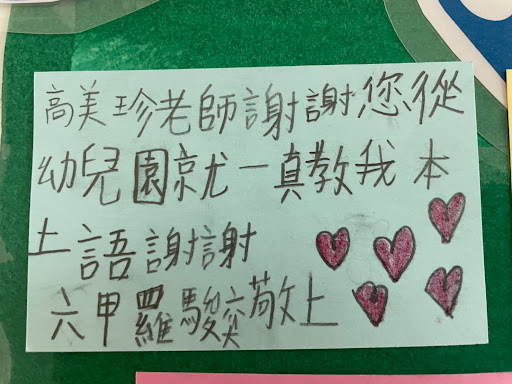 高美珍老師謝謝您從
幼兒園就一真教我本
土語謝謝
六甲羅駿奕敬上